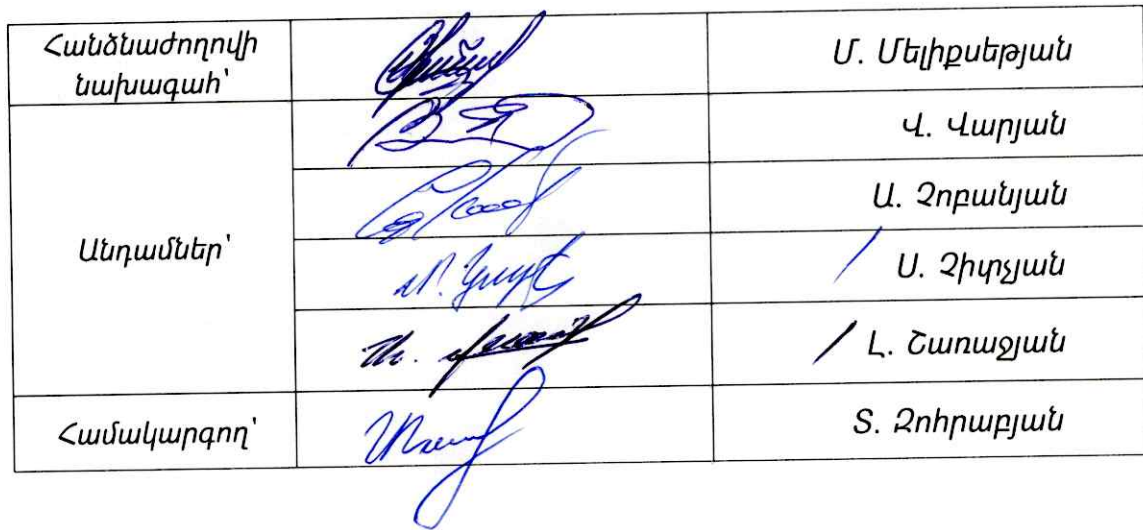 Հանձնաժողովի
նախագահ՝
Մ. Մելիքսեթյան
Վ. Վարյան
Ա. Չոբանյան
Անդամներ՝
Ս. Չիտչյան
Լ. Շառաջյան
Համակարգող՝
Տ. Զոհրաբյան